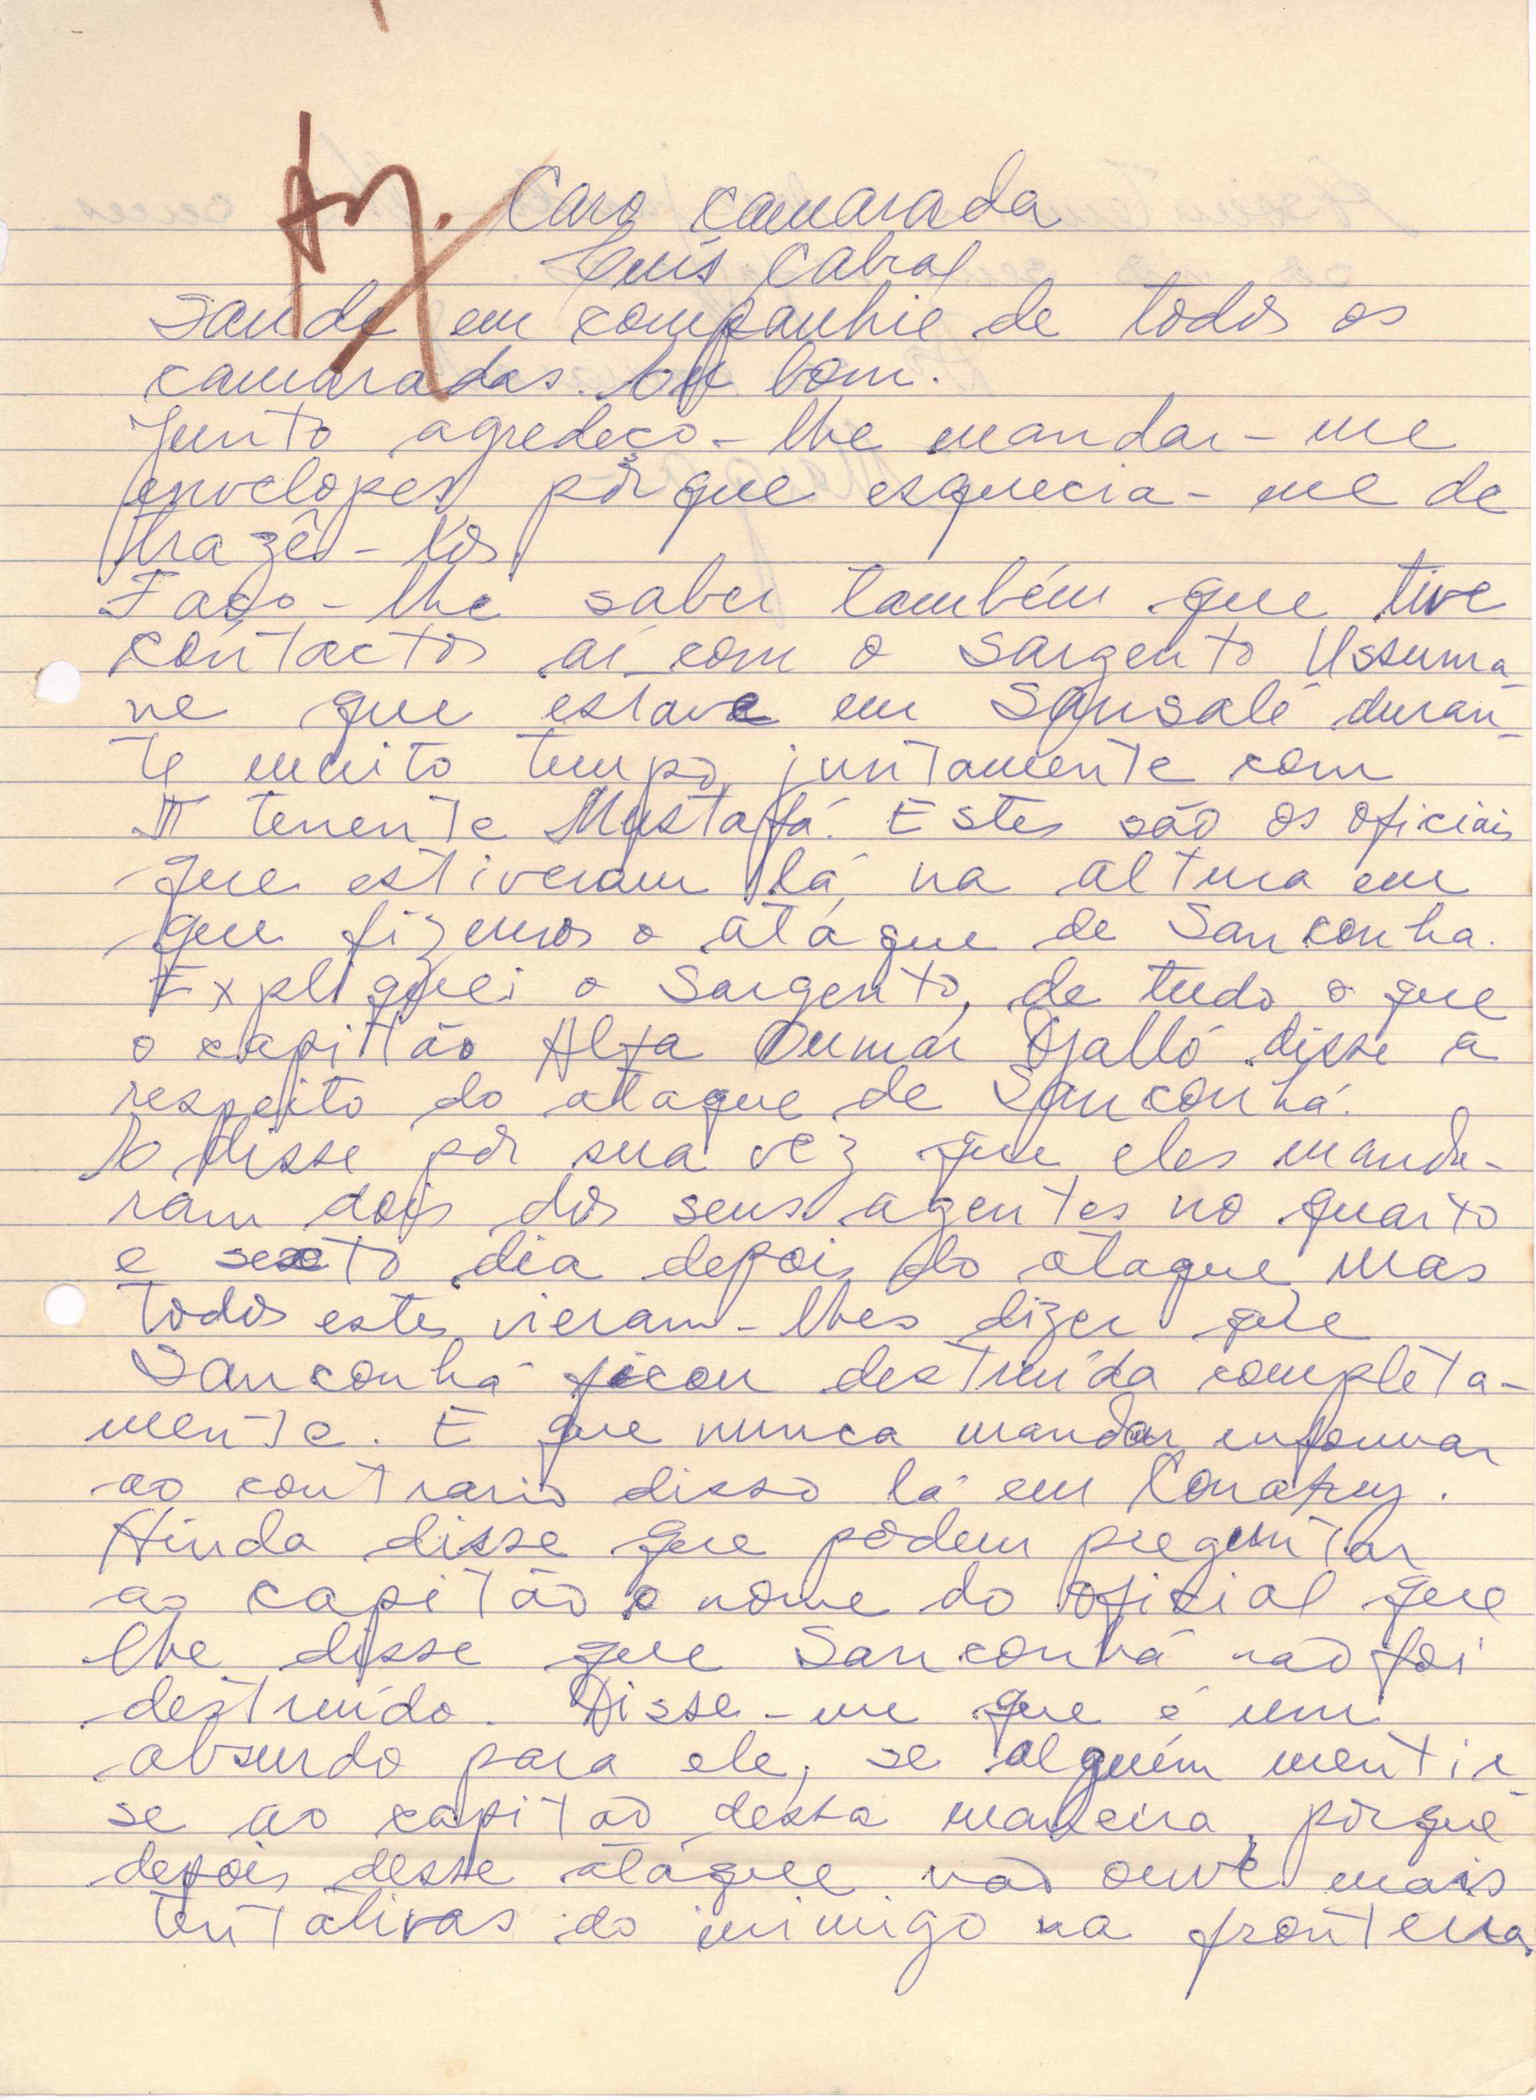 Caro camarada
Luís Cabral
Saude em companhie de todos os
camaradas. bom.
Junto agredeço-lhe mandar-me
envelopes, pórque esquecia-me de
trazê-los.
Faço-lhe saber também que tive
contactos aí com o sargento Ussuma-
ne que estave em Sansalé duran-
te muito tempo, juntamente com
tenente Mustaffá. Estes são os oficiais
que estiveram lá, na altura em
que fizemos o atáque de Sanconha.
Expliquei o Sargento, de tudo o que
o capitão Alfa Oumar Djalló disse a
respeito do ataque de Sanconhá.
disse por sua vez que eles manda-
ram dois dos seus agentes no quarto
e sexto dia depois do ataque, mas
todos estes vieram-lhes dizer que
Sanconhá ficou destruída completa-
mente. E que nunca mandou informar
ao contrario disso lá em Conakry.
Ainda disse que podem preguntar
ao capitão o nome do oficial que
lhe disse que Sanconhá não foi
destruído. Disse-me que é um
absurdo para ele, se alguém mentis-
se ao capitão desta maneira, pórque
depois desse atáque não ouve mais
tentativas do inimigo na fronteira.